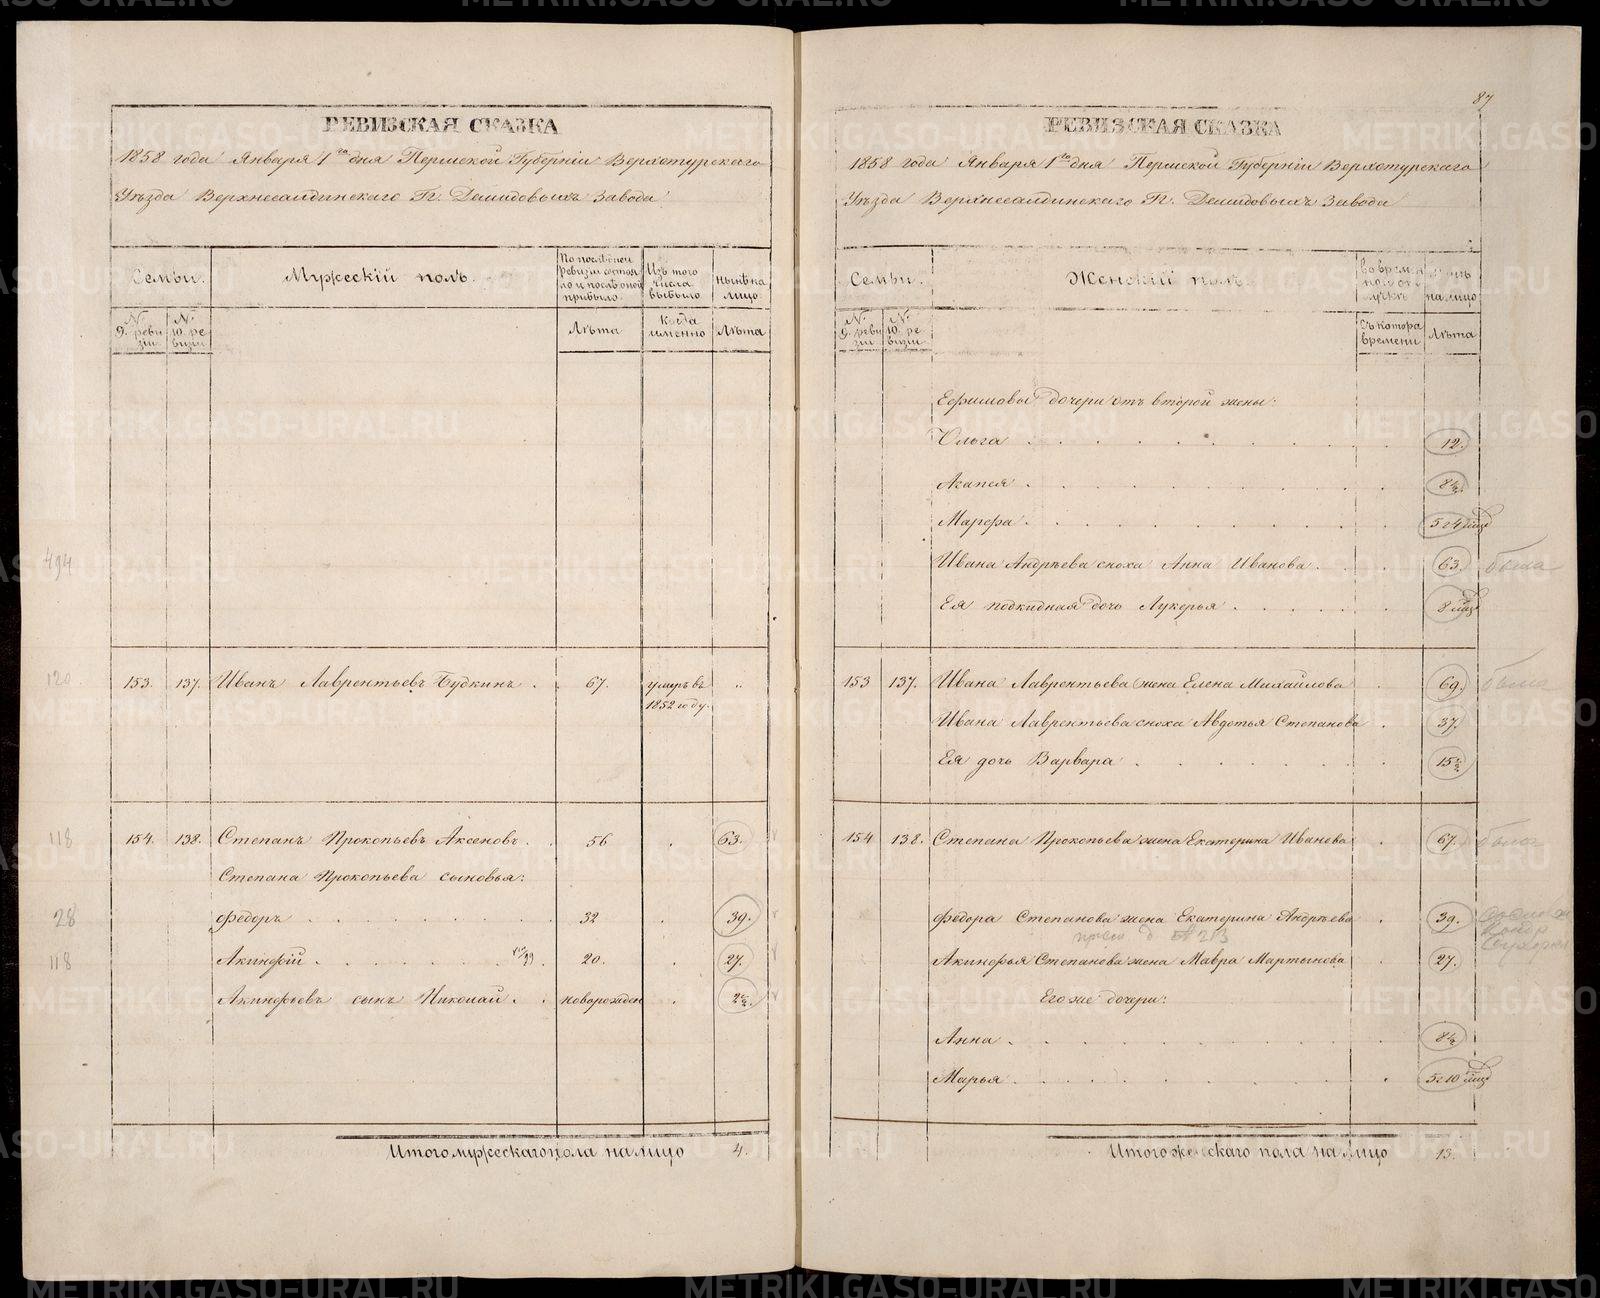 РЕВИЗСКАЯ СКАЗКА
1858 года Января 1го дня Пермской Губерніи Верхотурскаго
Уѣзда Верхнесалдинскаго Гг. Демидовыхъ Завода
Семьи.
Мужескій полъ.
По послѣдней ревизіи состояло и послѣ оной прибыло.
Изъ того числа выбыло
Нынѣ на лицо
№ 9. ревизіи
№ 10. ревизіи
Лѣта
Когда именно
Лѣта
494
120
153. 137. Иванъ Лаврентьевъ Будкинъ . 67. умеръ въ
1852 году.
118 154. 138. Степанъ Прокопьевъ Аксеновъ . 56 63.
Степана Прокопьева сыновья:
28 Федоръ 32 39.
118 Акинфій 20. 27.
Акинфьевъ сынъ Николай . новорожден 2½.
Итого мужескаго пола на лицо 4.
87
РЕВИЗСКАЯ СКАЗКА
1858 года Января 1го дня Пермской Губерніи Верхотурскаго
Уѣзда Верхнесалдинскаго Гг. Демидовыхъ Завода
Семьи.
Женскій полъ.
Во временной отлучкѣ
Нынѣ на лицо
№ 9. ревизіи
№ 10. ревизіи
Съ котора времени
Лѣта
Ефимовы дочери отъ второй жены:
Ольга 12.
Акапея 8½.
Марфа 5 г 4 мцъ
Ивана Андрѣева сноха Анна Иванова . 63. была
Ея подкидная дочь Лукерья 8 мцъ
153 137. Ивана Лаврентьева жена Елена Михайлова 69. была
Ивана Лаврентьева сноха Авдотья Степанова 37.
Ея дочь Варвара 15½
154 138. Степана Прокопьева жена Екатерина Иванова 67. была
Федора Степанова жена Екатерина Андрѣева 39.
№ 213
Акинфья Степанова жена Мавра Мартынова 27.
Его же дочери:
Анна 8½
Марья 5 г 10 мцъ
Итого женскаго пола на лицо 13.
METRIKI.GASO-URAL.RU